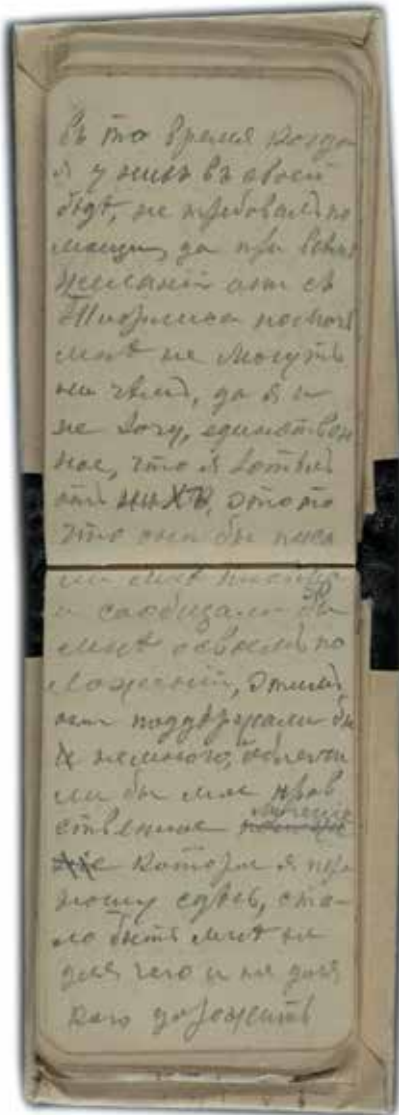 въ то время когда
я у нихъ въ своей
бѣдѣ, не требовалъ по
мощи, да при всемъ
желаніи они съ
помочь
мнѣ не могутъ
ни чѣмъ, да я и
не хочу, единствен
ное, что я хотѣлъ
отъ нихъ, это то
что они бы писа
ли мнѣ письма
50
и сообщали бы
мнѣ освоемъ по
ложеніи, этимъ
они поддержали бы
и немного, облегчи
ли бы мои нрав
ственные мученія
которы я пере
ношу сдѣсь, ста
ло быть мнѣ не
для чего и не для
кого дорожить